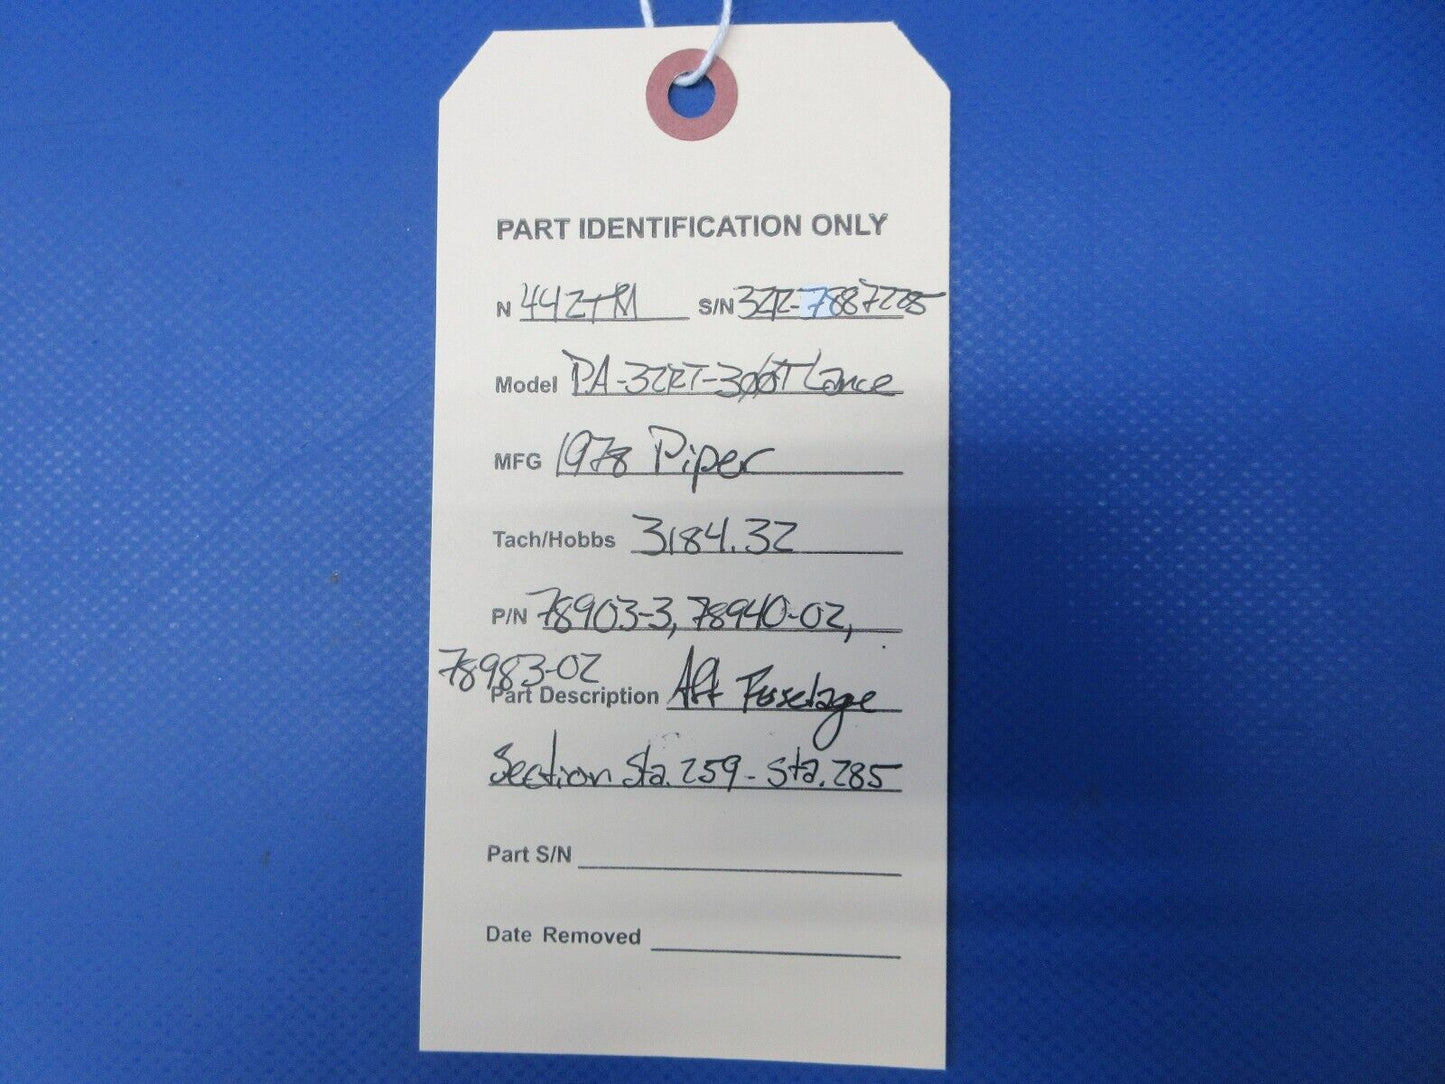 PART IDENTIFICATION ONLY
N 442TM S/N 32R-7887285
Model PA-32RT-300T Lance
MFG 1978 Piper
Tach/Hobbs 3184.32
P/N 78903-3, 78940-02,
78983-02
Part Description Aft Fuselage
Section Sta. 259 - Sta. 285
Part S/N
Date Removed